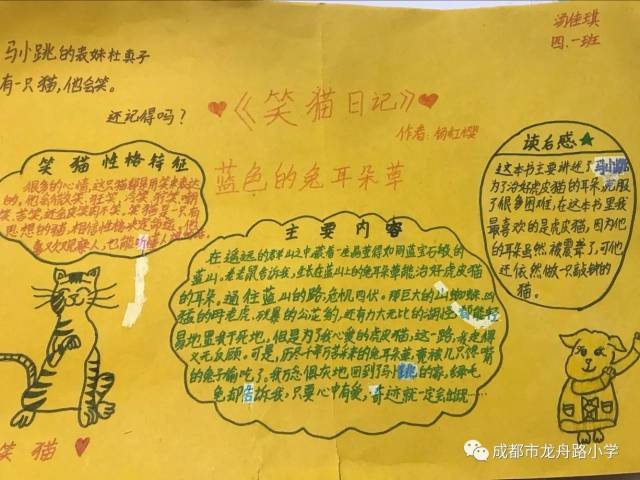 汤佳琪
四.一班
马小跳的表妹杜真子
有一只猫，他会笑。
还记得吗？
《笑猫日记》
作者：杨红樱
蓝色的兔耳朵草
笑猫性格特征
很多的心情，这只猫都是用笑来表达
的，他会微笑、狂笑、冷笑、奸笑、嘲
笑、苦笑，还会皮笑肉不笑，笑猫是一只有
思想的猫，相信性格决定命运，他
喜欢观察人，也能听
主要内容
在遥远的群山之中藏着一座晶莹得如同蓝宝石般的
蓝山。老老鼠告诉我，生长在蓝山上的兔耳朵草能治好虎皮猫
的耳朵。通往蓝山的路，危机四伏。那巨大的山蜘蛛、凶
猛的母老虎、残暴的公花豹，还有力大无比的湖怪都能轻
易地置我于死地，但是为了我心爱的虎皮猫，这一路，我走得
义无反顾。可是，历尽千辛万苦采来的兔耳朵草，竟被几只馋嘴
的兔子偷吃了。我万念俱灰地回到马小跳的家，绿毛
兔却告诉我，只要心中有爱，奇迹就一定会出现……
读后感
这本书主要讲述了马小跳
为了治好虎皮猫的耳朵，克服
了很多困难，在这本书里我
最喜欢的是虎皮猫，因为它
的耳朵虽然被震聋了，可他
还依然做一只敲钟的
猫。
笑猫
成都市龙舟路小学